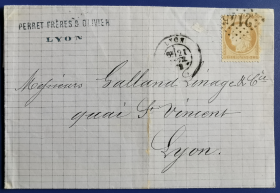 PERRET FRÈRES & OLIVIER
LYON
LYON
21
Messieurs Galland Lenage & Cie
quai St Vincent
Lyon.